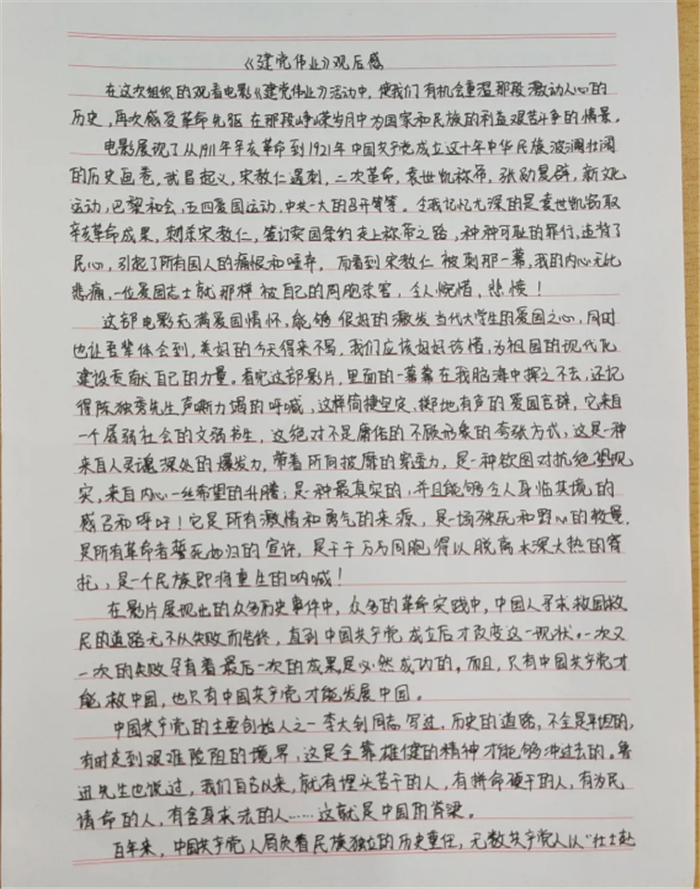 《建党伟业》观后感
在这次组织的观看电影《建党伟业》活动中，使我们有机会重温那段激动人心的
历史，再次感受革命先驱在那段峥嵘岁月中为国家和民族的利益艰苦斗争的情景。
电影展现了从1911年辛亥革命到1921年中国共产党成立这十年中华民族波澜壮阔
的历史画卷，武昌起义，宋教仁遇刺，二次革命，袁世凯称帝，张勋复辟，新文化
运动，巴黎和会，五四爱国运动，中共一大的召开等等。令我记忆尤深的是袁世凯窃取
辛亥革命成果，刺杀宋教仁，签订卖国条约走上称帝之路，种种可耻的罪行，违背了
民心，引起了所有国人的痛恨和唾弃，而看到宋教仁被刺那一幕，我的内心无比
悲痛，一位爱国志士就那样被自己的同胞杀害，令人惋惜，悲愤！
这部电影充满爱国情怀，能够很好的激发当代大学生的爱国之心，同时
也让吾辈体会到，美好的今天得来不易，我们应该好好珍惜，为祖国的现代化
建设贡献自己的力量。看完这部影片，里面的一幕幕在我脑海中挥之不去，还记
得陈独秀先生声嘶力竭的呼喊，这样简捷坚定、掷地有声的爱国言辞，它来自
一个孱弱社会的文弱书生，这绝对不是庸俗的不顾形象的夸张方式，这是一种
来自人灵魂深处的爆发力，带着所向披靡的穿透力，是一种欲图对抗绝望现
实，来自内心一丝希望的升腾；是一种最真实的，并且能够令人身临其境的
感召和呼吁！它是所有激情和勇气的来源，是一场独死和野心的较量，
是所有革命者誓死如归的宣许，是千千万万同胞得以脱离水深火热的寄
托，是一个民族即将重生的呐喊！
在影片展现出的众多历史事件中，众多的革命实践中，中国人寻求救国救
民的道路无不以失败而告终，直到中国共产党成立后才改变这一现状。一次又
一次的失败孕育着最后一次的成果是必然成功的。而且，只有中国共产党才
能救中国，也只有中国共产党才能发展中国。
中国共产党的主要创始人之一李大钊同志写过，历史的道路，不全是平坦的，
有时走到艰难险阻的境界，这是全靠雄健的精神才能够冲过去的。鲁
迅先生也说过，我们自古以来，就有埋头苦干的人，有拼命硬干的人，有为民
请命的人，有舍身求法的人……这就是中国的脊梁。
百年来，中国共产党人肩负着民族独立的历史重任，无数共产党人以"壮士赴